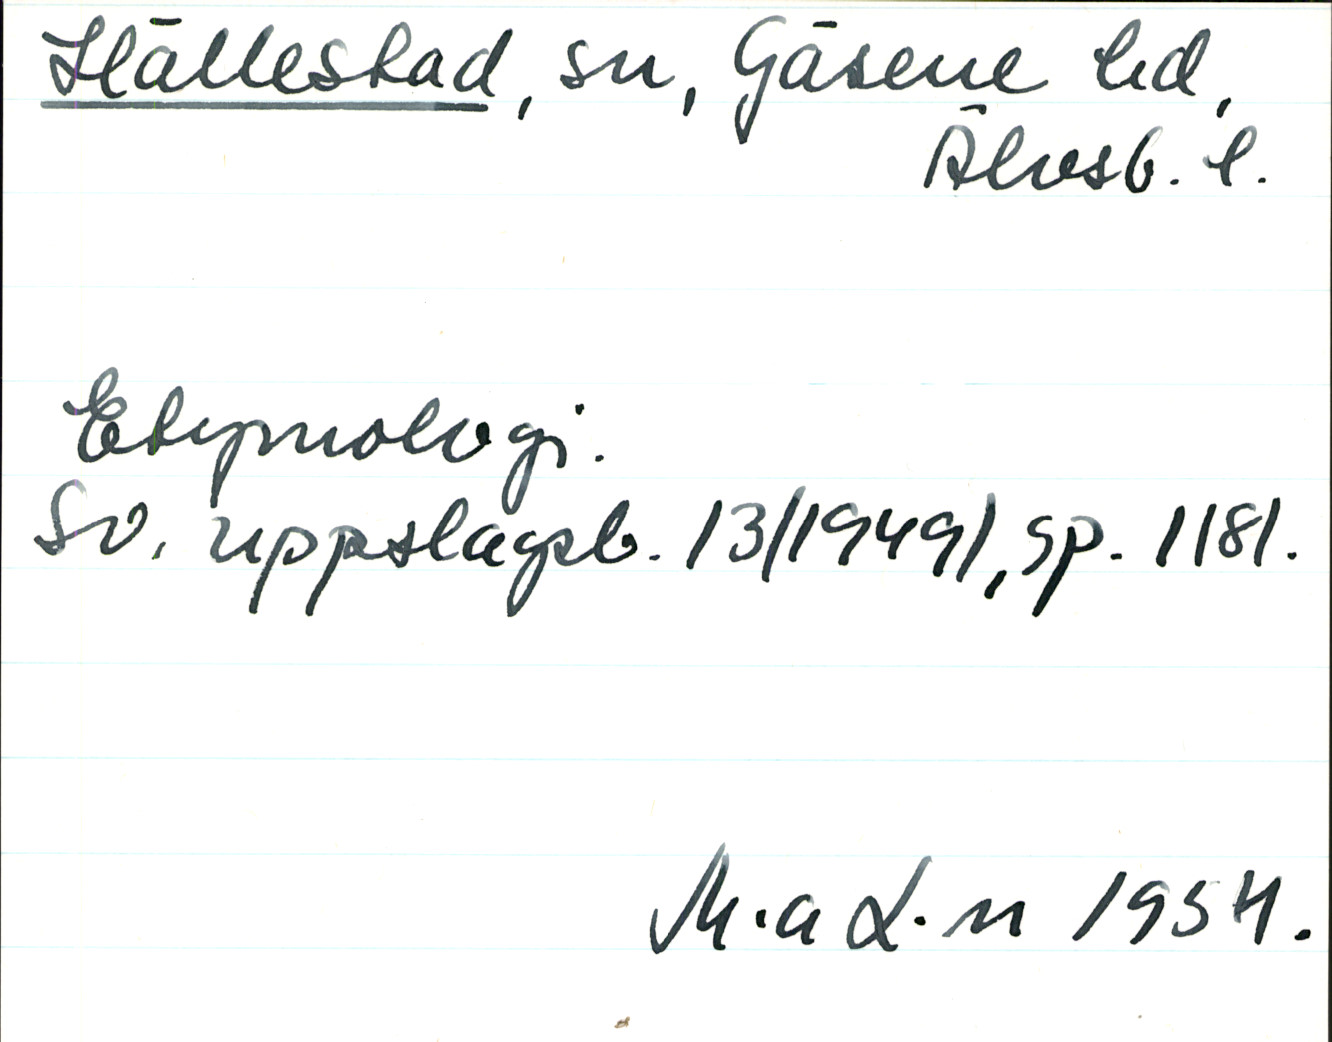 Hällestad, sn, Gäsene hd,
Älvsb. l.
Etymologi.
Sv. uppslagsb. 13/1949/, sp. 1181.
M·a L·n 1954.